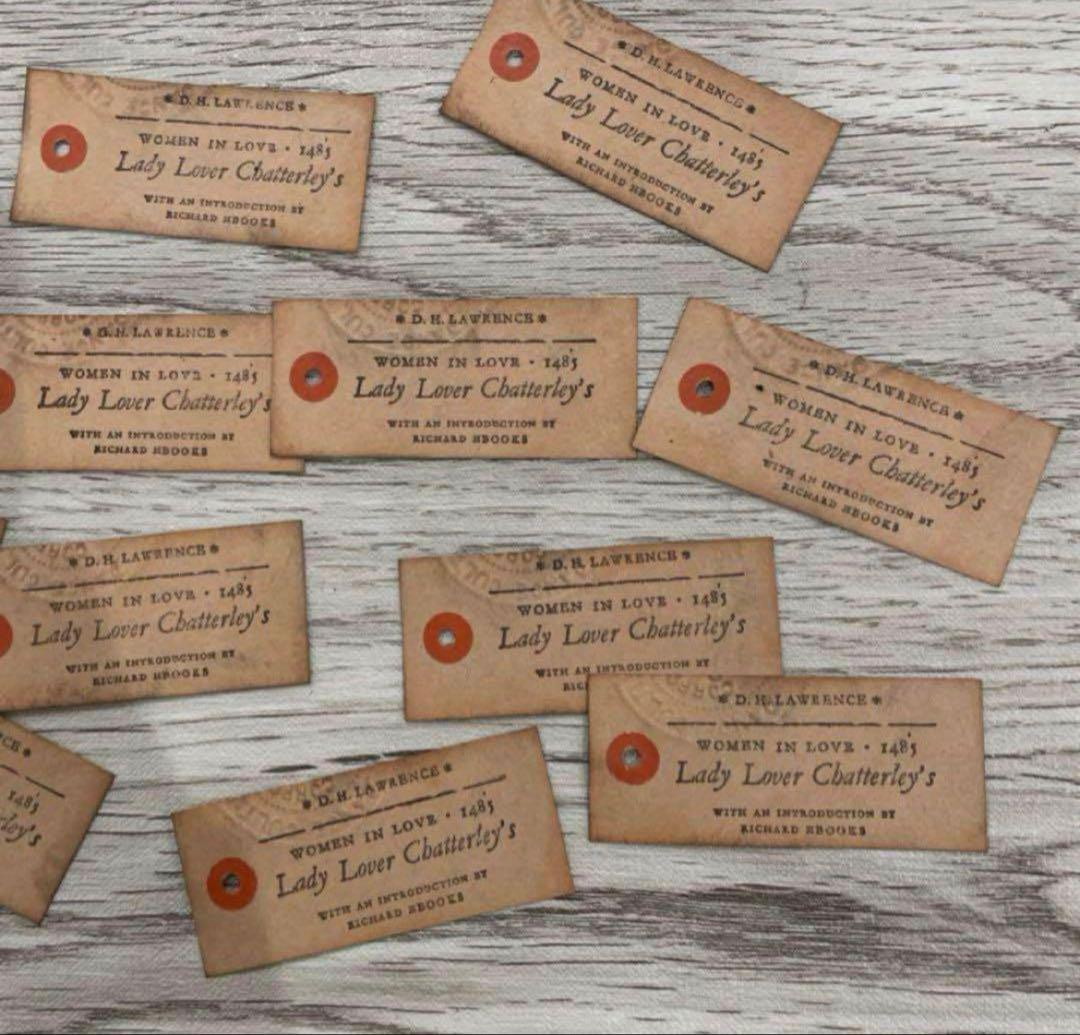 * D. H. LAWRENCE *
WOMEN IN LOVE • 1485
Lady Lover Chatterley's
WITH AN INTRODUCTION BY
RICHARD HBOOKS
* D. H. LAWRENCE *
WOMEN IN LOVE • 1485
Lady Lover Chatterley's
WITH AN INTRODUCTION BY
RICHARD HBOOKS
* D. H. LAWRENCE *
WOMEN IN LOVE • 1485
Lady Lover Chatterley's
WITH AN INTRODUCTION BY
RICHARD HBOOKS
* D. H. LAWRENCE *
WOMEN IN LOVE • 1485
Lady Lover Chatterley's
WITH AN INTRODUCTION BY
RICHARD HBOOKS
* D. H. LAWRENCE *
WOMEN IN LOVE • 1485
Lady Lover Chatterley's
WITH AN INTRODUCTION BY
RICHARD HBOOKS
* D. H. LAWRENCE *
WOMEN IN LOVE • 1485
Lady Lover Chatterley's
WITH AN INTRODUCTION BY
RICHARD HBOOKS
* D. H. LAWRENCE *
WOMEN IN LOVE • 1485
Lady Lover Chatterley's
WITH AN INTRODUCTION BY
RIC
* D. H. LAWRENCE *
WOMEN IN LOVE • 1485
Lady Lover Chatterley's
WITH AN INTRODUCTION BY
RICHARD HBOOKS
CE *
1485
ley's
* D. H. LAWRENCE *
WOMEN IN LOVE • 1485
Lady Lover Chatterley's
WITH AN INTRODUCTION BY
RICHARD HBOOKS